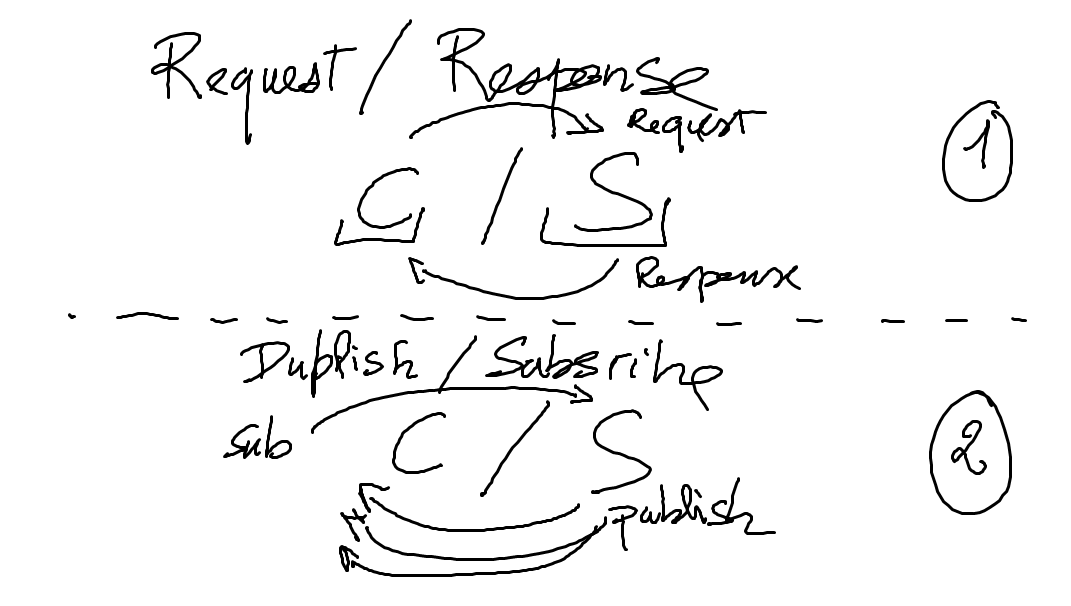 Request / Response
Request
C / S
Response
1
Publish / Subsribe
sub
C / S
publish
2